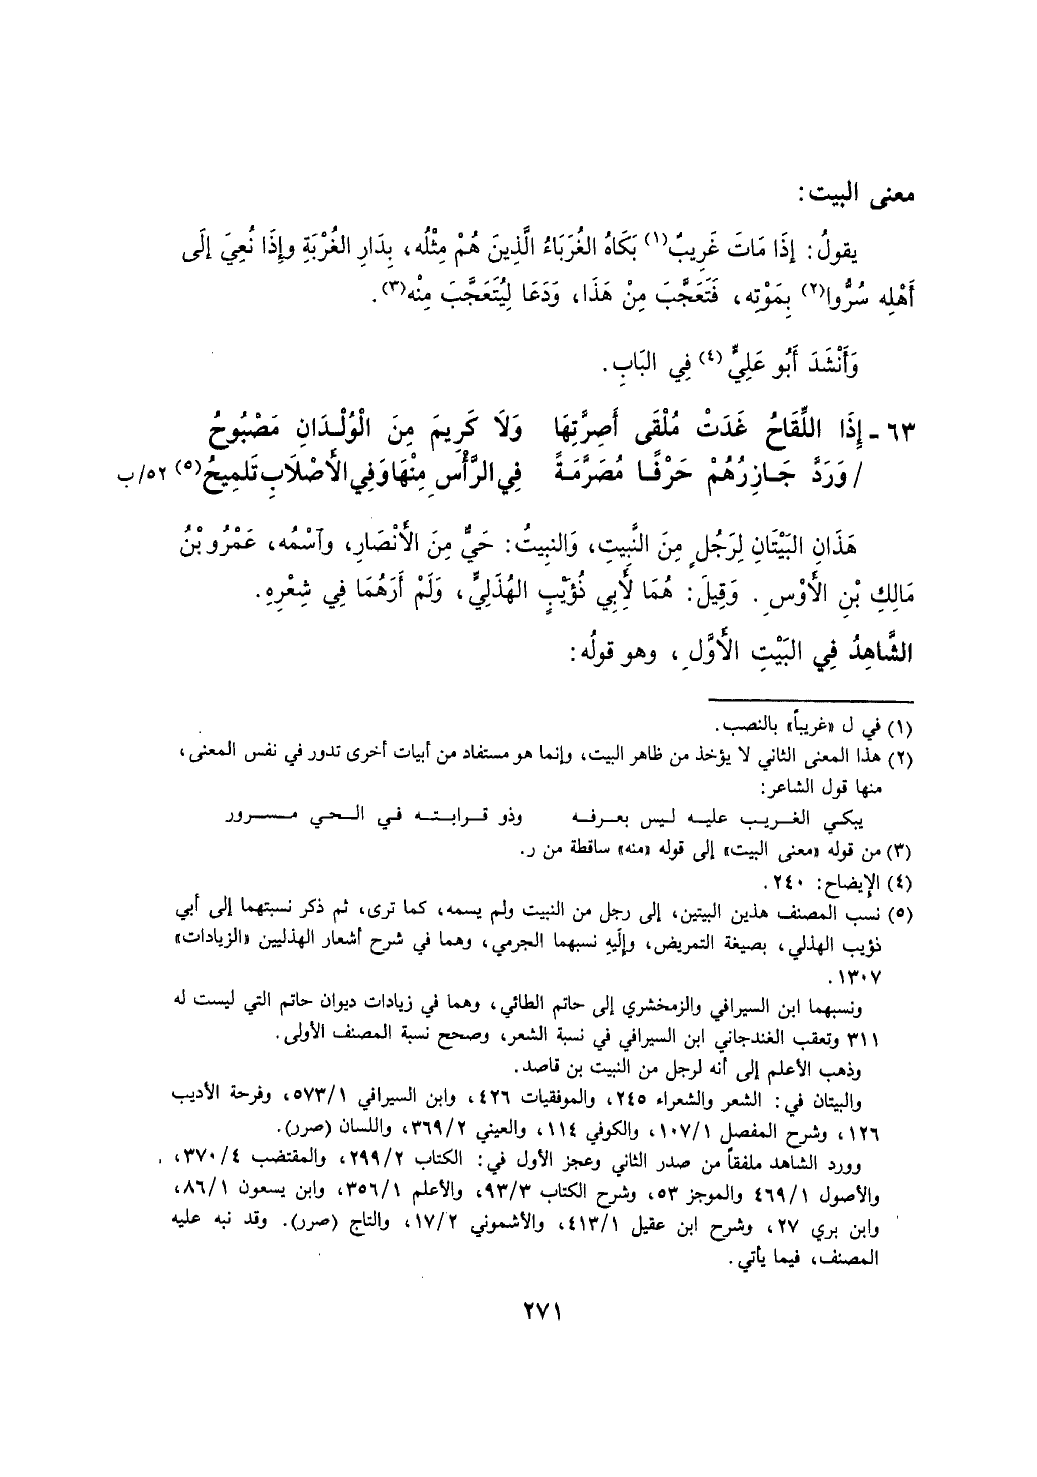 معنى البيت:
يقولُ: إذَا مَاتَ غَرِيبٌ(١) بَكَاهُ الغُرَبَاءُ الَّذِينَ هُمْ مِثْلُه، بِدَارِ الغُرْبَةِ وإذَا نُعِيَ إلَى
أهْلِه سُرُّوا(٢) بِمَوْتِه، فَتَعَجَّبَ مِنْ هَذَا، وَدَعَا لِيُتَعَجَّبَ مِنْه(٣).
وَأَنْشَدَ أَبُو عَلِيٍّ(٤) فِي البَابِ.
٦٣ - إِذَا اللِّقَاحُ غَدَتْ مُلْقَى أَصِرَّتِهَا وَلَا كَرِيمَ مِنَ الْوُلْدَانِ مَصْبُوحُ
/ وَرَدَّ جَازِرُهُمْ حَرْفًا مُصَرَّمَةً فِي الرَّأْسِ مِنْهَا وَفِي الأَصْلَابِ تَلمِيحُ(٥) ٥٢/ب
هَذَانِ البَيْتَانِ لِرَجُلٍ مِنَ النَّبِيتِ، وَالنبِيتُ: حَيٌّ مِنَ الأَنْصَارِ، وآسْمُه، عَمْرُو بْنُ
مَالِكِ بْنِ الأَوْسِ. وَقِيلَ: هُمَا لأَبِي ذُؤَيْبٍ الهُذَلِيِّ، وَلَمْ أَرَهُمَا فِي شِعْرِهِ.
الشَّاهِدُ فِي البَيْتِ الأَوَّلِ، وهو قولُه:
(١) في ل «غريباً» بالنصب.
(٢) هذا المعنى الثاني لا يؤخذ من ظاهر البيت، وإنما هو مستفاد من أبيات أخرى تدور في نفس المعنى،
منها قول الشاعر:
يبكي الغريب عليه ليس بعرفه وذو قرابته في الحي مسرور
(٣) من قوله «معنى البيت» إلى قوله «منه» ساقطة من ر.
(٤) الإيضاح: ٢٤٠.
(٥) نسب المصنف هذين البيتين، إلى رجل من النبيت ولم يسمه، كما ترى، ثم ذكر نسبتهما إلى أبي
ذؤيب الهذلي، بصيغة التمريض، وإليه نسبهما الجرمي، وهما في شرح أشعار الهذليين «الزيادات»
١٣٠٧.
ونسبهما ابن السيرافي والزمخشري إلى حاتم الطائي، وهما في زيادات ديوان حاتم التي ليست له
٣١١ وتعقب الغندجاني ابن السيرافي في نسبة الشعر، وصحح نسبة المصنف الأولى.
وذهب الأعلم إلى أنه لرجل من النبيت بن قاصد.
والبيتان في: الشعر والشعراء ٢٤٥، والموفقيات ٤٢٦، وابن السيرافي ٥٧٣/١، وفرحة الأديب
١٢٦، وشرح المفصل ١٠٧/١، والكوفي ١١٤، والعيني ٣٦٩/٢، واللسان (صرر).
وورد الشاهد ملفقاً من صدر الثاني وعجز الأول في: الكتاب ٢٩٩/٢، والمقتضب ٣٧٠/٤،
والأصول ٤٦٩/١ والموجز ٥٣، وشرح الكتاب ٩٣/٣، والأعلم ٣٥٦/١، وابن يسعون ٨٦/١،
وابن بري ٢٧، وشرح ابن عقيل ٤١٣/١، والأشموني ١٧/٢، والتاج (صرر). وقد نبه عليه
المصنف، فيما يأتي.
٢٧١